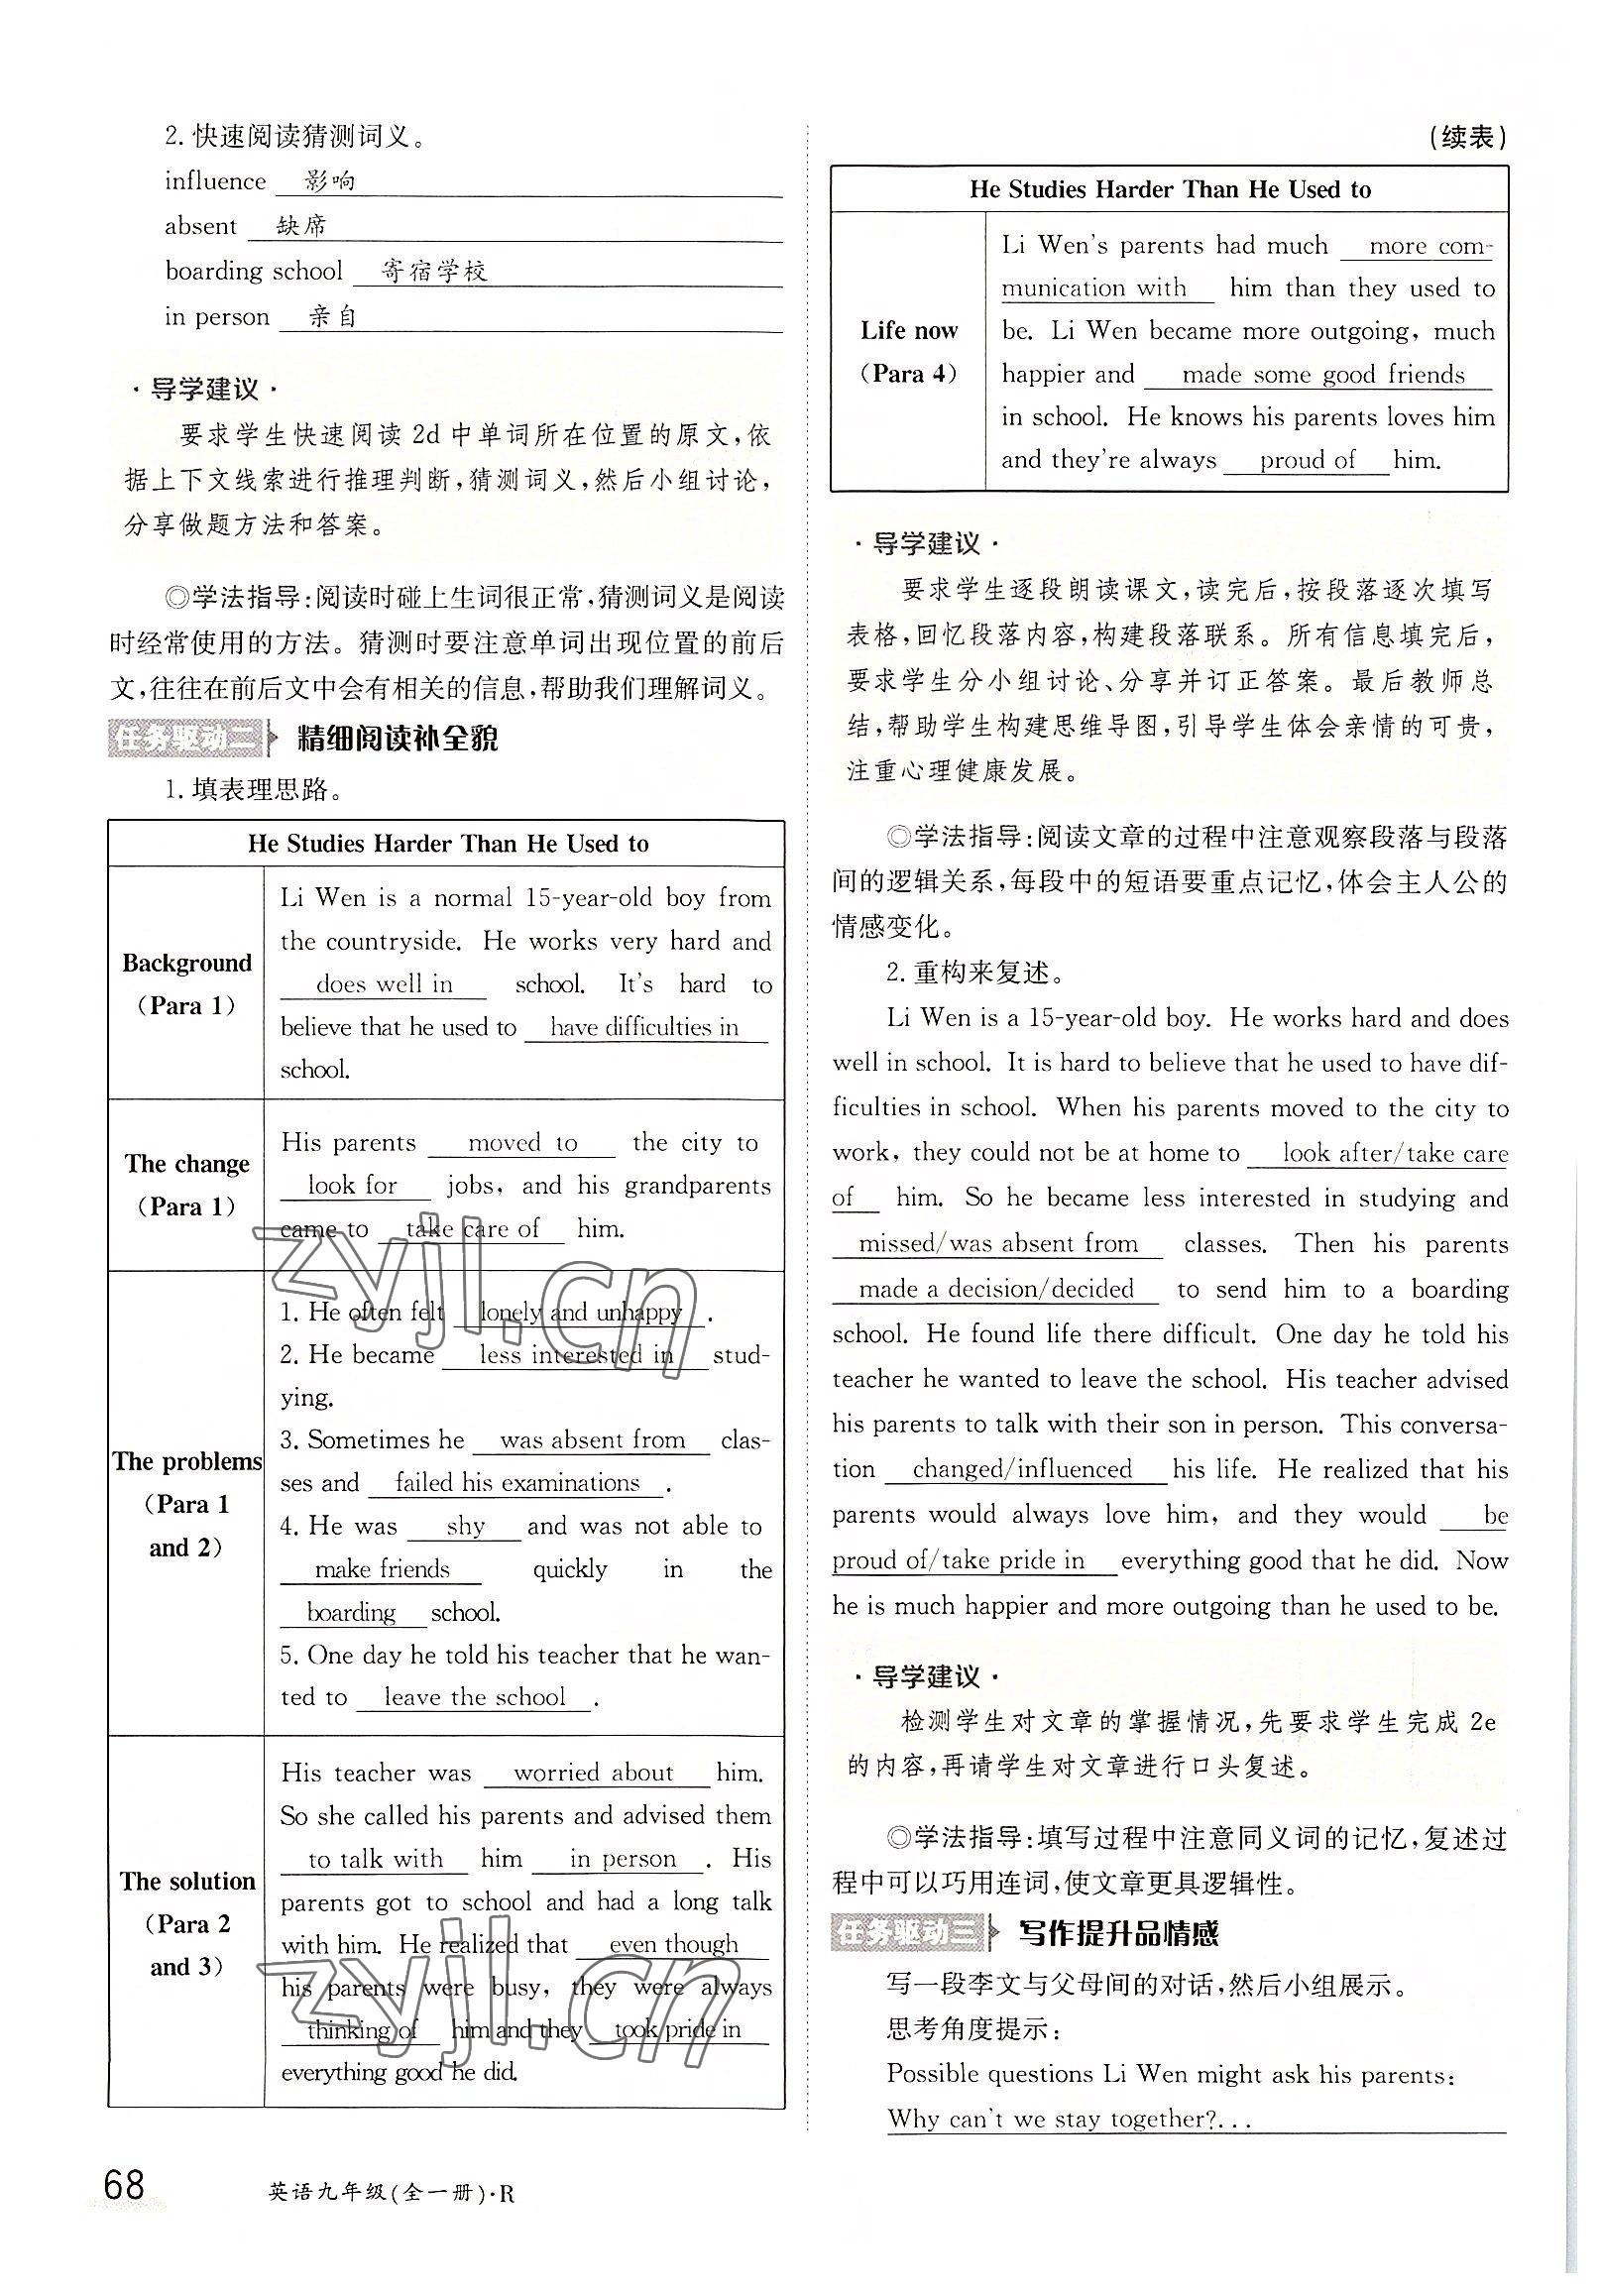 2. 快速阅读猜测词义。
influence 影响
absent 缺席
boarding school 寄宿学校
in person 亲自
·导学建议·
要求学生快速阅读 2d 中单词所在位置的原文,依
据上下文线索进行推理判断,猜测词义,然后小组讨论,
分享做题方法和答案。
◎学法指导:阅读时碰上生词很正常,猜测词义是阅读
时经常使用的方法。猜测时要注意单词出现位置的前后
文,往往在前后文中会有相关的信息,帮助我们理解词义。
任务驱动二 精细阅读补全貌
1. 填表理思路。
He Studies Harder Than He Used to
Background
(Para 1)
Li Wen is a normal 15-year-old boy from
the countryside. He works very hard and
does well in school. It's hard to
believe that he used to have difficulties in
school.
The change
(Para 1)
His parents moved to the city to
look for jobs, and his grandparents
came to take care of him.
The problems
(Para 1
and 2)
1. He often felt lonely and unhappy.
2. He became less interested in stud-
ying.
3. Sometimes he was absent from clas-
ses and failed his examinations.
4. He was shy and was not able to
make friends quickly in the
boarding school.
5. One day he told his teacher that he wan-
ted to leave the school.
The solution
(Para 2
and 3)
His teacher was worried about him.
So she called his parents and advised them
to talk with him in person. His
parents got to school and had a long talk
with him. He realized that even though
his parents were busy, they were always
thinking of him and they took pride in
everything good he did.
68
英语九年级(全一册)·R
(续表)
He Studies Harder Than He Used to
Life now
(Para 4)
Li Wen's parents had much more com-
munication with him than they used to
be. Li Wen became more outgoing, much
happier and made some good friends
in school. He knows his parents loves him
and they're always proud of him.
·导学建议·
要求学生逐段朗读课文,读完后,按段落逐次填写
表格,回忆段落内容,构建段落联系。所有信息填完后,
要求学生分小组讨论、分享并订正答案。最后教师总
结,帮助学生构建思维导图,引导学生体会亲情的可贵,
注重心理健康发展。
◎学法指导:阅读文章的过程中注意观察段落与段落
间的逻辑关系,每段中的短语要重点记忆,体会主人公的
情感变化。
2. 重构来复述。
Li Wen is a 15-year-old boy. He works hard and does
well in school. It is hard to believe that he used to have dif-
ficulties in school. When his parents moved to the city to
work, they could not be at home to look after/take care
of him. So he became less interested in studying and
missed/was absent from classes. Then his parents
made a decision/decided to send him to a boarding
school. He found life there difficult. One day he told his
teacher he wanted to leave the school. His teacher advised
his parents to talk with their son in person. This conversa-
tion changed/influenced his life. He realized that his
parents would always love him, and they would be
proud of/take pride in everything good that he did. Now
he is much happier and more outgoing than he used to be.
·导学建议·
检测学生对文章的掌握情况,先要求学生完成 2e
的内容,再请学生对文章进行口头复述。
◎学法指导:填写过程中注意同义词的记忆,复述过
程中可以巧用连词,使文章更具逻辑性。
任务驱动三 写作提升品情感
写一段李文与父母间的对话,然后小组展示。
思考角度提示:
Possible questions Li Wen might ask his parents:
Why can't we stay together?...
zyjl.cn
zyjl.cn